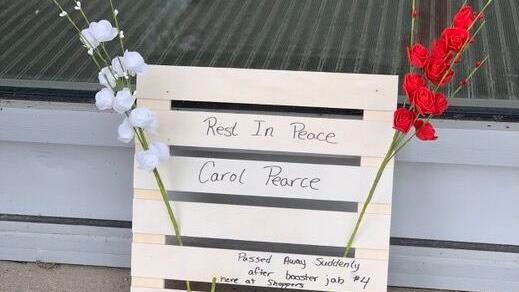 Rest In Peace
Carol Pearce
Passed Away Suddenly
after booster jab #4
here at Shoppers